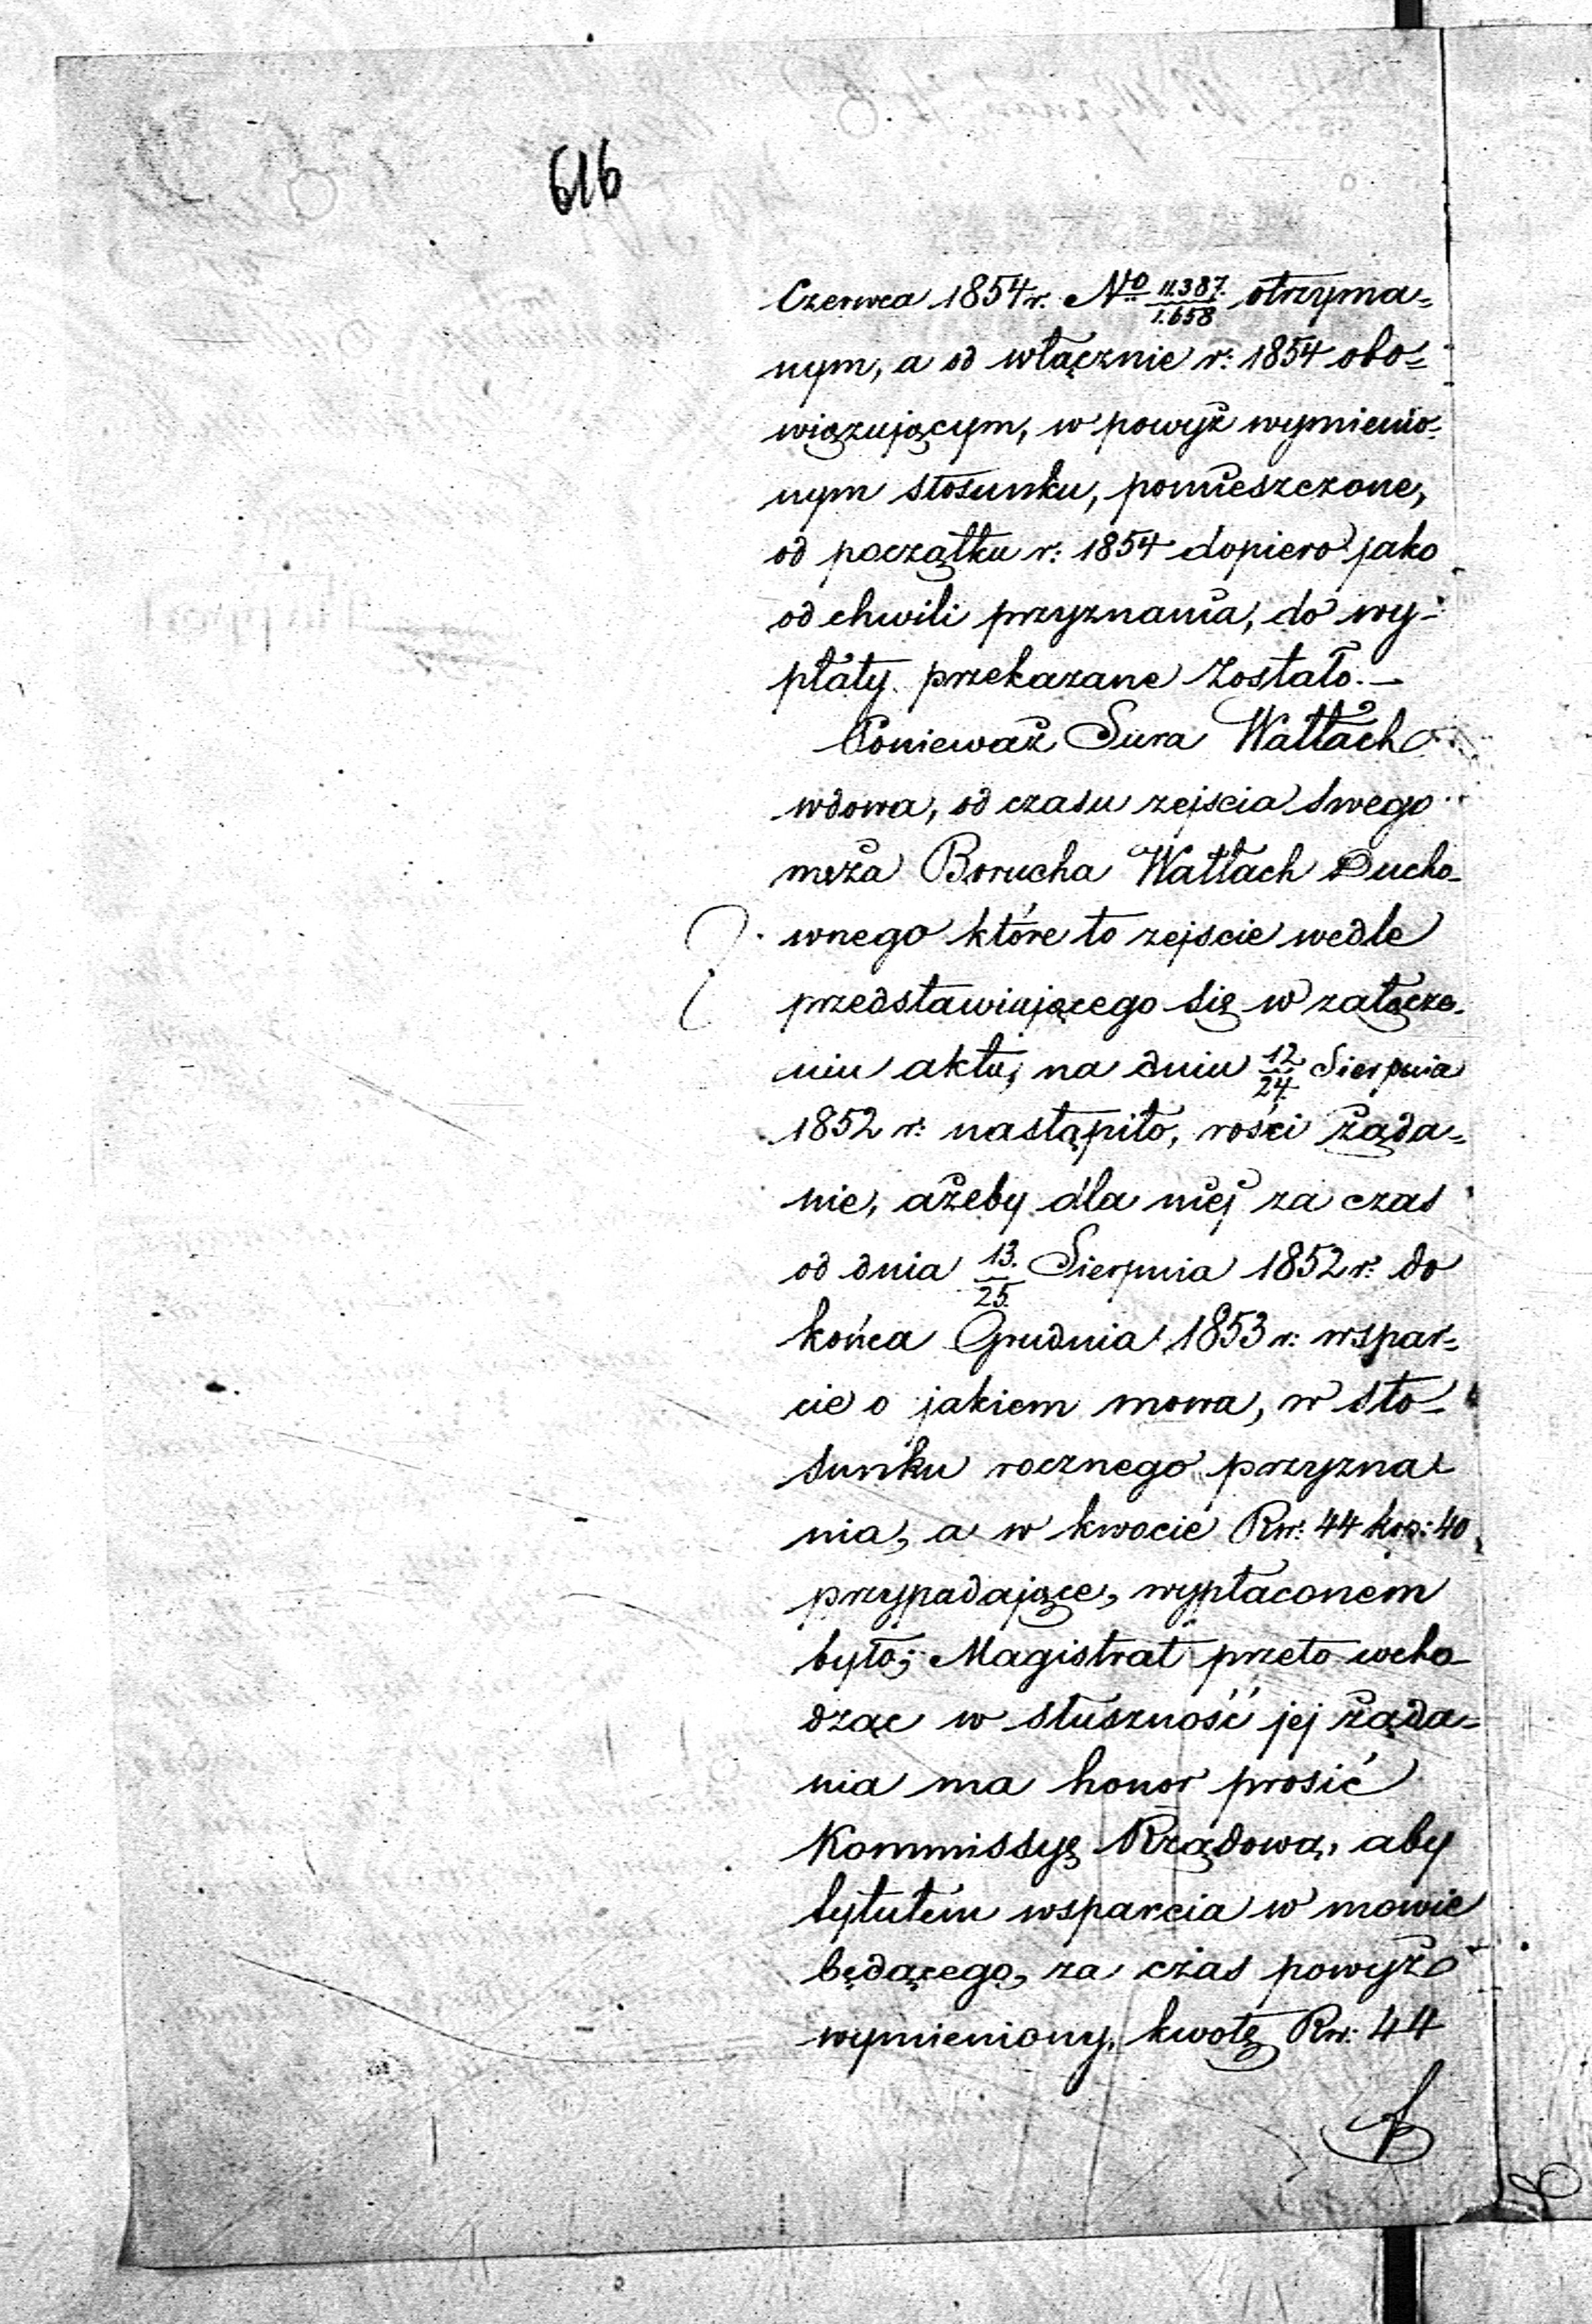 616
Czerwca 1854 r. No 11.387/1.658 otrzyma=
nym, a od włącznie r: 1854 obo=
wiązującym, w powyż wymienio-
nym stosunku, pomieszczone,
od początku r: 1854 dopiero jako
od chwili przyznania, do wy-
płaty przekazane zostało.—
Ponieważ Sura Wallach
wdowa, od czasu zejścia swego
męża Borucha Wallach Ducho-
wnego które to zejście wedle
przedstawiającego się w załącze-
niu aktu, na dniu 12/24 Sierpnia
1852 r: nastąpiło, rości żąda=
nie, ażeby dla niej za czas
od dnia 13./25. Sierpnia 1852 r: do
końca Grudnia 1853 r: wspar=
cie o jakiem mowa, w sto-
sunku rocznego przyzna-
nia, a w kwocie Rsr: 44 kop: 40
przypadające, wypłaconem
było; Magistrat przeto wcho-
dząc w słuszność jej żąda=
nia ma honor prosić
Kommissyę Rządową, aby
tytułem wsparcia w mowie
będącego, za czas powyż
wymieniony, kwotę Rsr: 44